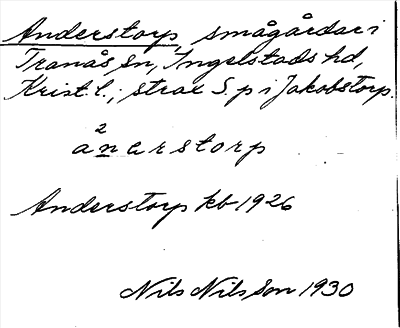 Anderstorp, smågårdar i
Tranås sn, Ingelstads hd,
Krist. l.; strax S. p i Jakobstorp.
2
anerstorp
Anderstorp kb 1926
Nils Nilsson 1930